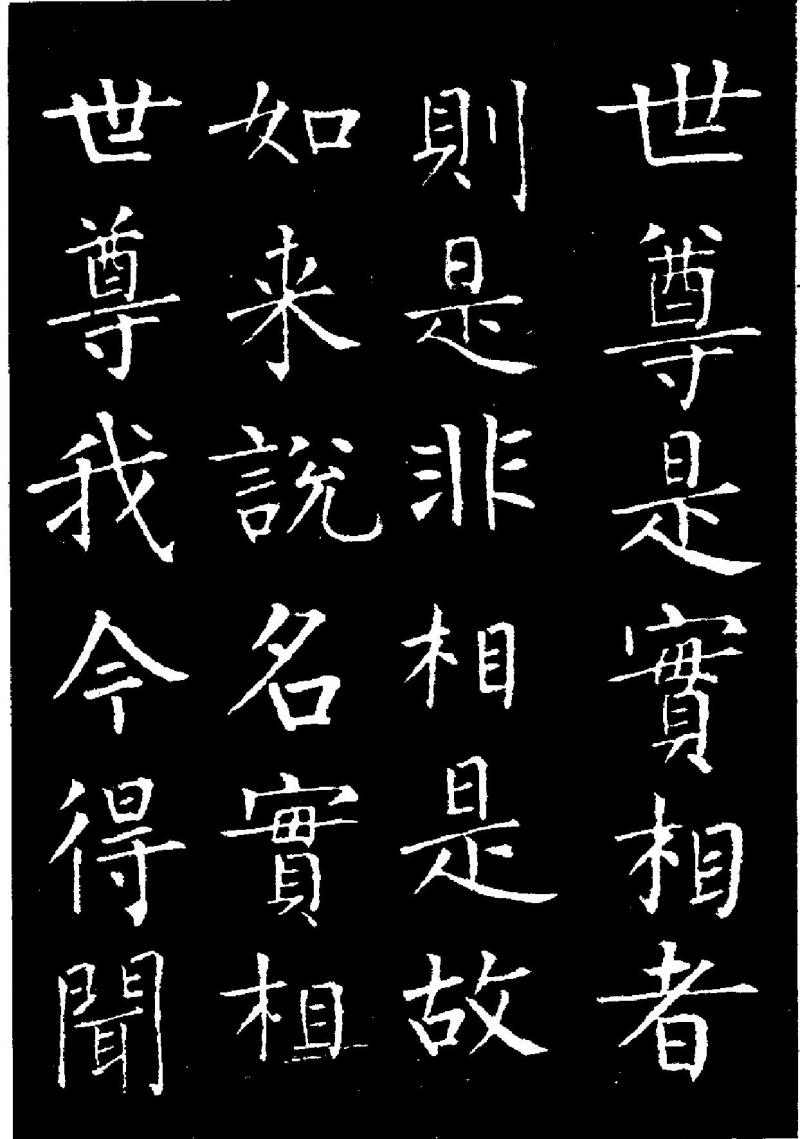 世尊是實相者
則是非相是故
如来說名實相
世尊我今得聞